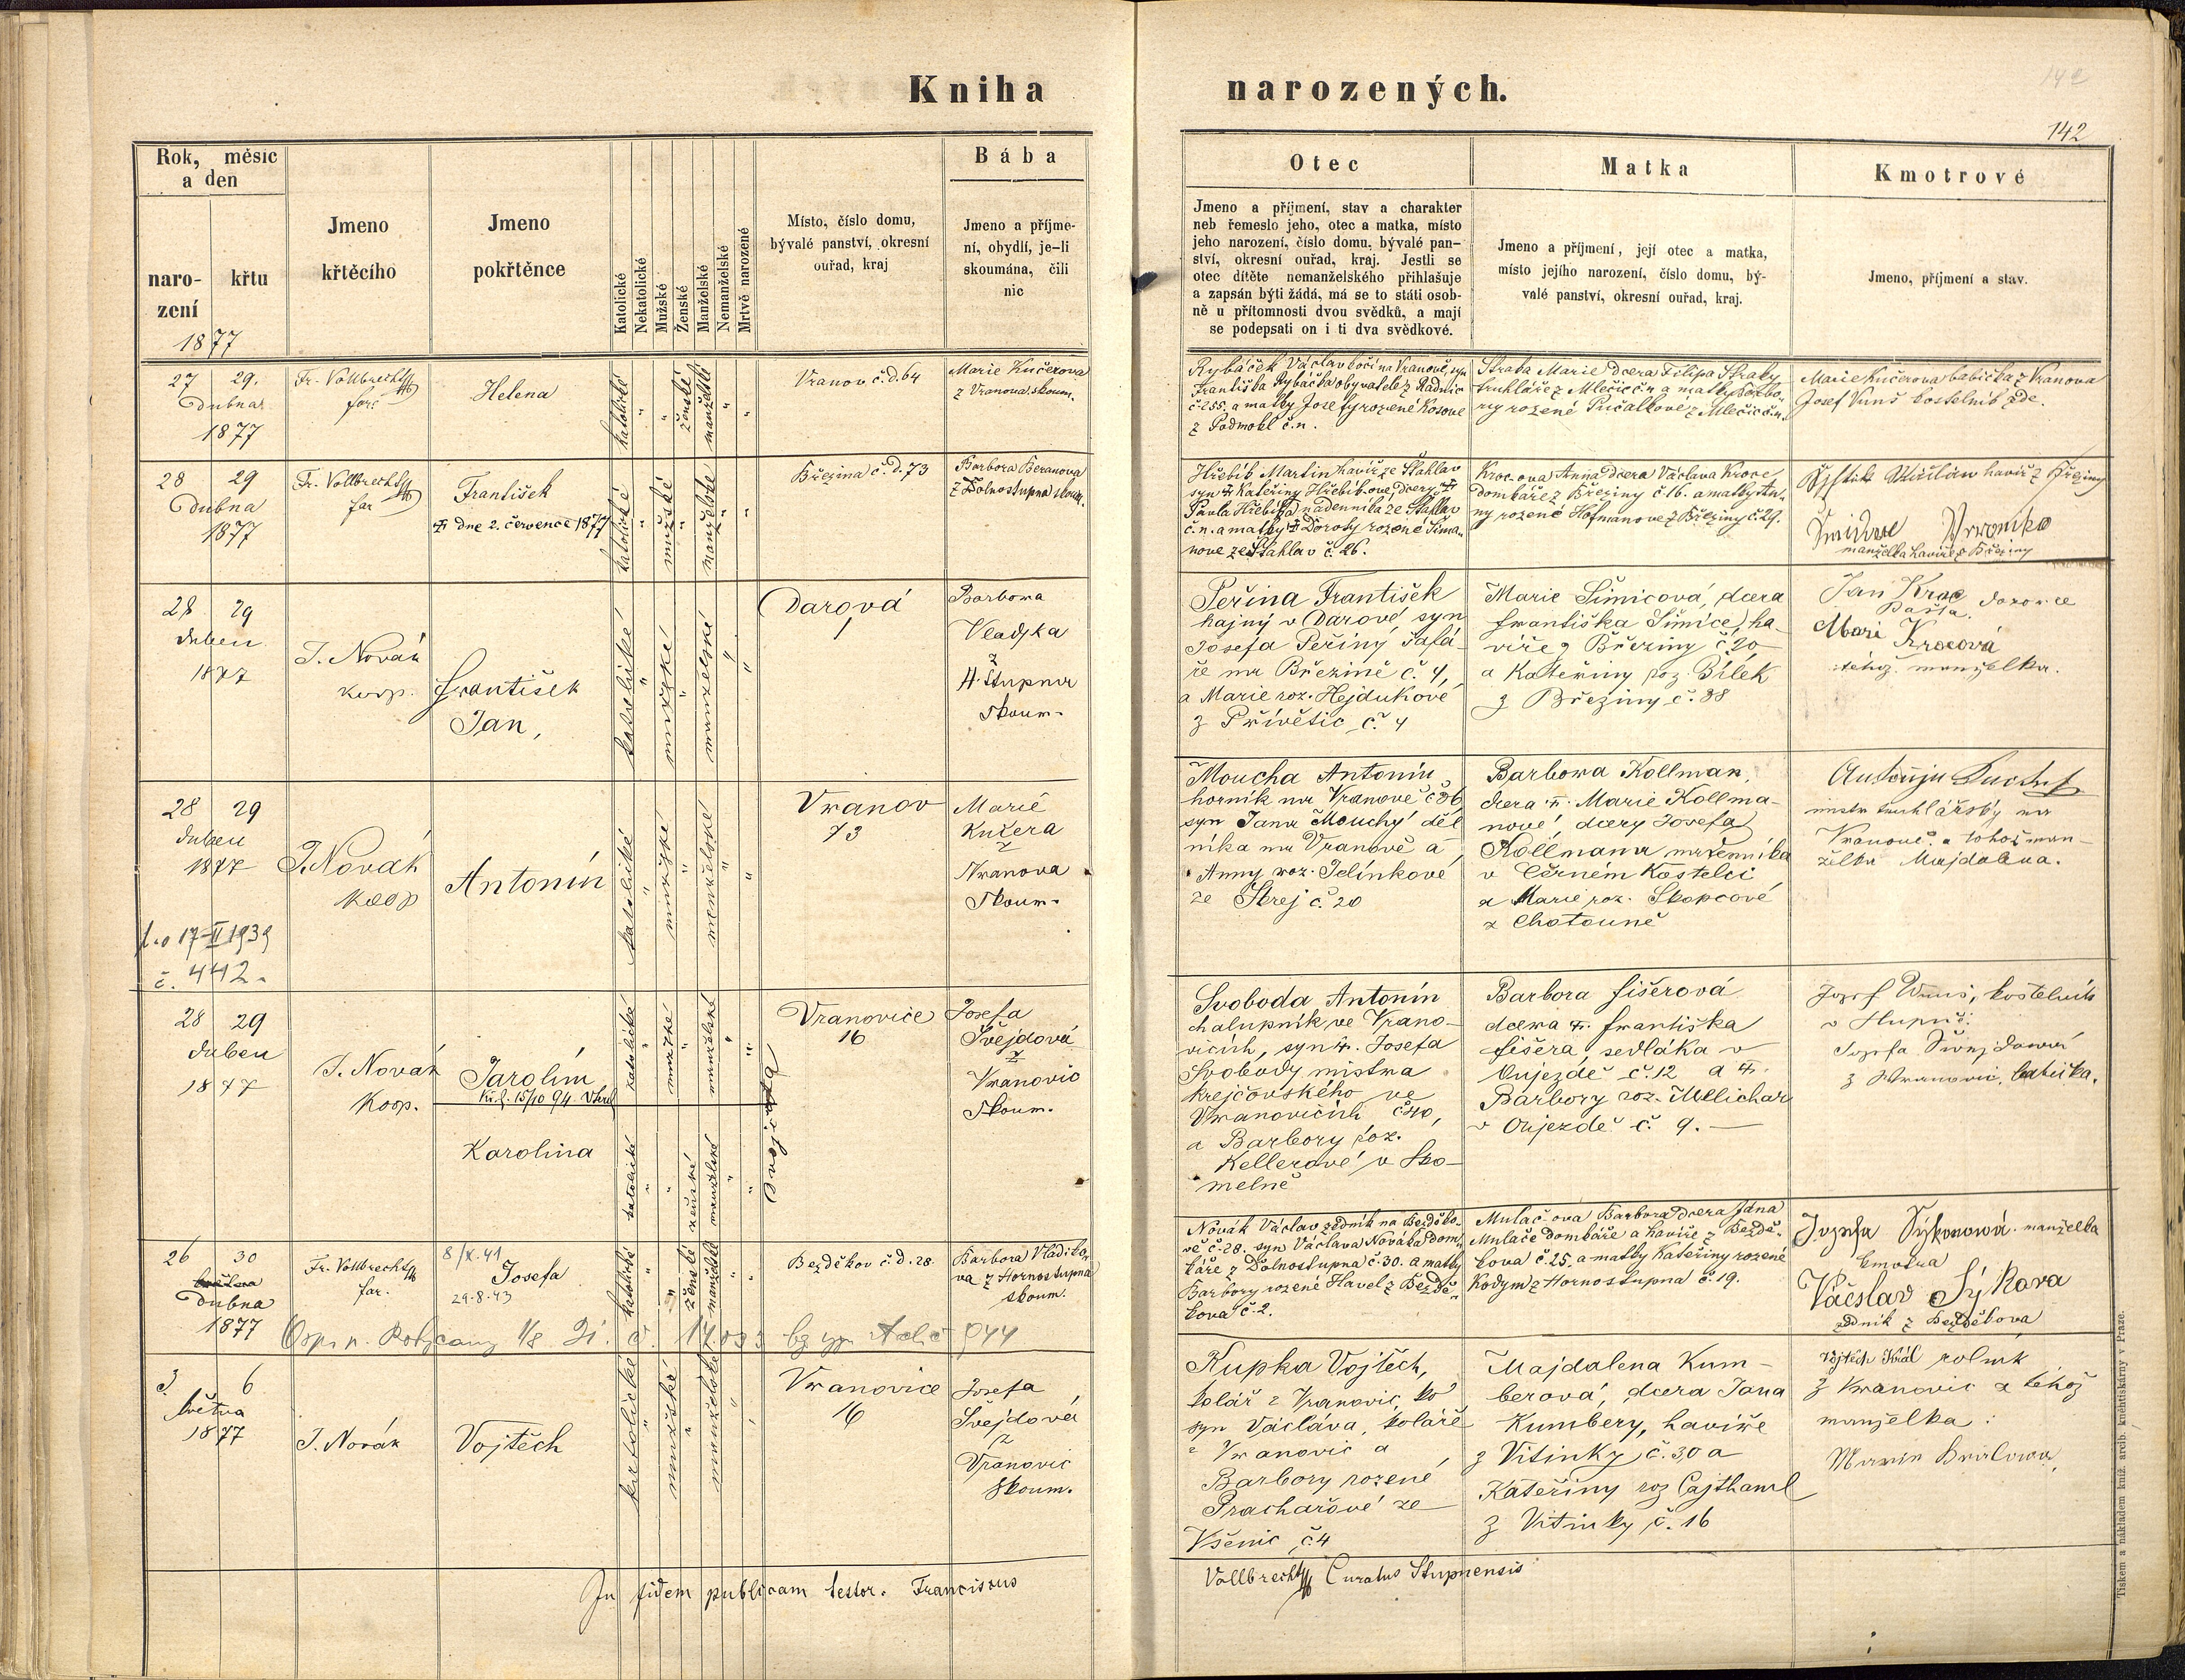 Kniha
narozených.
142
142
Rok, měsíc
a den
naro-
zení
křtu
1877
Jmeno
křtěcího
Jmeno
pokřtěnce
Katolické
Nekatolické
Mužské
Ženské
Manželské
Nemanželské
Mrtvě narozené
Místo, číslo domu,
bývalé panství, okresní
ouřad, kraj
Bába
Jmeno a příjme-
ní, obydlí, je-li
skoumána, čili
nic
Otec
Jmeno a příjmení, stav a charakter
neb řemeslo jeho, otec a matka, místo
jeho narození, číslo domu, bývalé pan-
ství, okresní ouřad, kraj. Jestli se
otec dítěte nemanželského přihlašuje
a zapsán býti žádá, má se to státi osob-
ně u přítomnosti dvou svědků, a mají
se podepsati on i ti dva svědkové.
Matka
Jmeno a příjmení, její otec a matka,
místo jejího narození, číslo domu, bý-
valé panství, okresní ouřad, kraj.
Kmotrové
Jmeno, příjmení a stav.
27 29.
Dubna
1877
Fr. Vollbrecht
far.
Helena
katolické
ženské
manželské
Vranov č.d. 64
Marie Kučerova
z Vranova skoum.
Rybáček Václav kočí na Vranově, syn
Františka Rybáčka obyvatele z Radnic
č. 255. a matky Josefy rozené Kosove
z Podmokl č. n.
Straka Marie dcera Filipa Straky
truhláře z Mlečic č. n a matky Barbo-
ry rozené Pučalkove z Mlečic č. n.
Marie Kučerova babička z Vranova
Josef Vuns kostelník zde.
28 29
Dubna
1877
Fr. Vollbrecht
far
František
dne 2. července 1877
katolické
mužské
manželské
Březina č.d. 73
Barbora Beranova
z Dolnostupna skoum.
Hřebík Martin havíř ze Štahlav
syn Kateřiny Hřebíkove, dcery
Pavla Hřebíka nadenníka ze Štahlav
č. n. a matky Doroty rozené Šima-
nove ze Štahlav č. 26.
Kroc-ova Anna dcera Václava Kroce
domkáře z Březiny č. 16. a matky An-
ny rozené Hofmanove z Březiny č. 29.
havíř z Březiny
manželka havíře z Březiny
28 29
duben
1877
J. Novák
koop.
František
Jan,
katolické
mužské
manželské
Darová
1
Barbora
Vladyka
z
H. Stupna
skoum.
Peřina František
hajný v Darové, syn
Josefa Peřiny šafá-
ře na Březině č. 4,
a Marie roz. Hejdukové
z Přívětic č. 4
Marie Šimicová, dcera
Františka Šimice, ha-
víře z Březiny č. 20
a Kateřiny roz. Bílek
z Březiny č. 38
Jan Kroc
Bašta. darovce
Mari Krocová
téhož manželka.
28 29
duben
1877
17-II 1939
č. 442.
J. Novák
koop
Antonín
katolické
mužské
manželské
Vranov
73
Marie
Kučera
z
Vranova
skoum.
Moucha Antonín,
horník na Vranově č 36
syn Jana Mouchy děl
níka na Vranově a
Anny roz. Jelínkové
ze Skrej č. 20
Barbora Kollman,
dcera Marie Kollma-
nové, dcery Josefa
Kollmana
v Černém Kostelci
a Marie roz. Skopcové
z Chotouně
mistr truhlářský na
Vranově a tohož man-
želka Majdalena.
28 29
duben
1877
J. Novák
koop.
Jarolím
15/10 94.
Karolina
katolické
mužské
manželské
katolické
ženské
manželské
Dvojčata
Vranovice
16
Josefa
Švejdová
z
Vranovic
skoum.
Svoboda Antonín
chalupník ve Vrano-
vicích, syn Josefa
Svobody mistra
krejčovského ve
Vranovicích č. 40,
a Barbory roz.
Kellerové v Sko-
melně
Barbora Fišerová
dcera Františka
Fišera, sedláka v
Oujezdě č. 12 a
Barbory roz. Melichar
v Oujezdě č. 9.
Josef Vuns, kostelník
v Stupně.
Josefa Švejdová
z Vranovic, babička.
26 30
Dubna
1877
Fr. Vollbrecht
far.
8/X. 41
Josefa
29.8.43
katolické
ženské
manželské
Bezděkov č.d. 28.
Barbora Vladika-
va z Hornostupna
skoum.
Novák Václav zedník na Bezděko-
vě č. 28. syn Václava Nováka dom-
káře z Dolnostupna č. 30. a matky
Barbory rozené Havel z Bezdě-
kova č. 2.
Mulač-ova Barbora dcera Jana
Mulače domkáře a havíře z Bezdě-
kova č. 25. a matky Kateřiny rozené
Kodym z Hornostupna č. 19.
Josefa Sýkorová manželka
kmotra
Václav Sýkora
zedník z Bezděkova
3 6
května
1877
J. Novák
Vojtěch
katolické
mužské
manželské
Vranovice
16
Josefa
Švejdová
z
Vranovic
skoum.
Kupka Vojtěch,
kolář z Vranovic,
syn Václava, koláře
z Vranovic a
Barbory rozené
Prachařové ze
Všenic č. 4
Majdalena Kum-
berová, dcera Jana
Kumbery, havíře
z Vitinky č. 30 a
Kateřiny roz Cajthaml
z Vitinky č. 16
Vojtěch Král rolník
z Vranovic a téhož
manželka:
Marie Králowa
In fidem publicam testor. Franciscus
Vollbrecht Curatus Stupnensis
Tiskem a nákladem kníž. arcib. knihtiskárny v Praze.